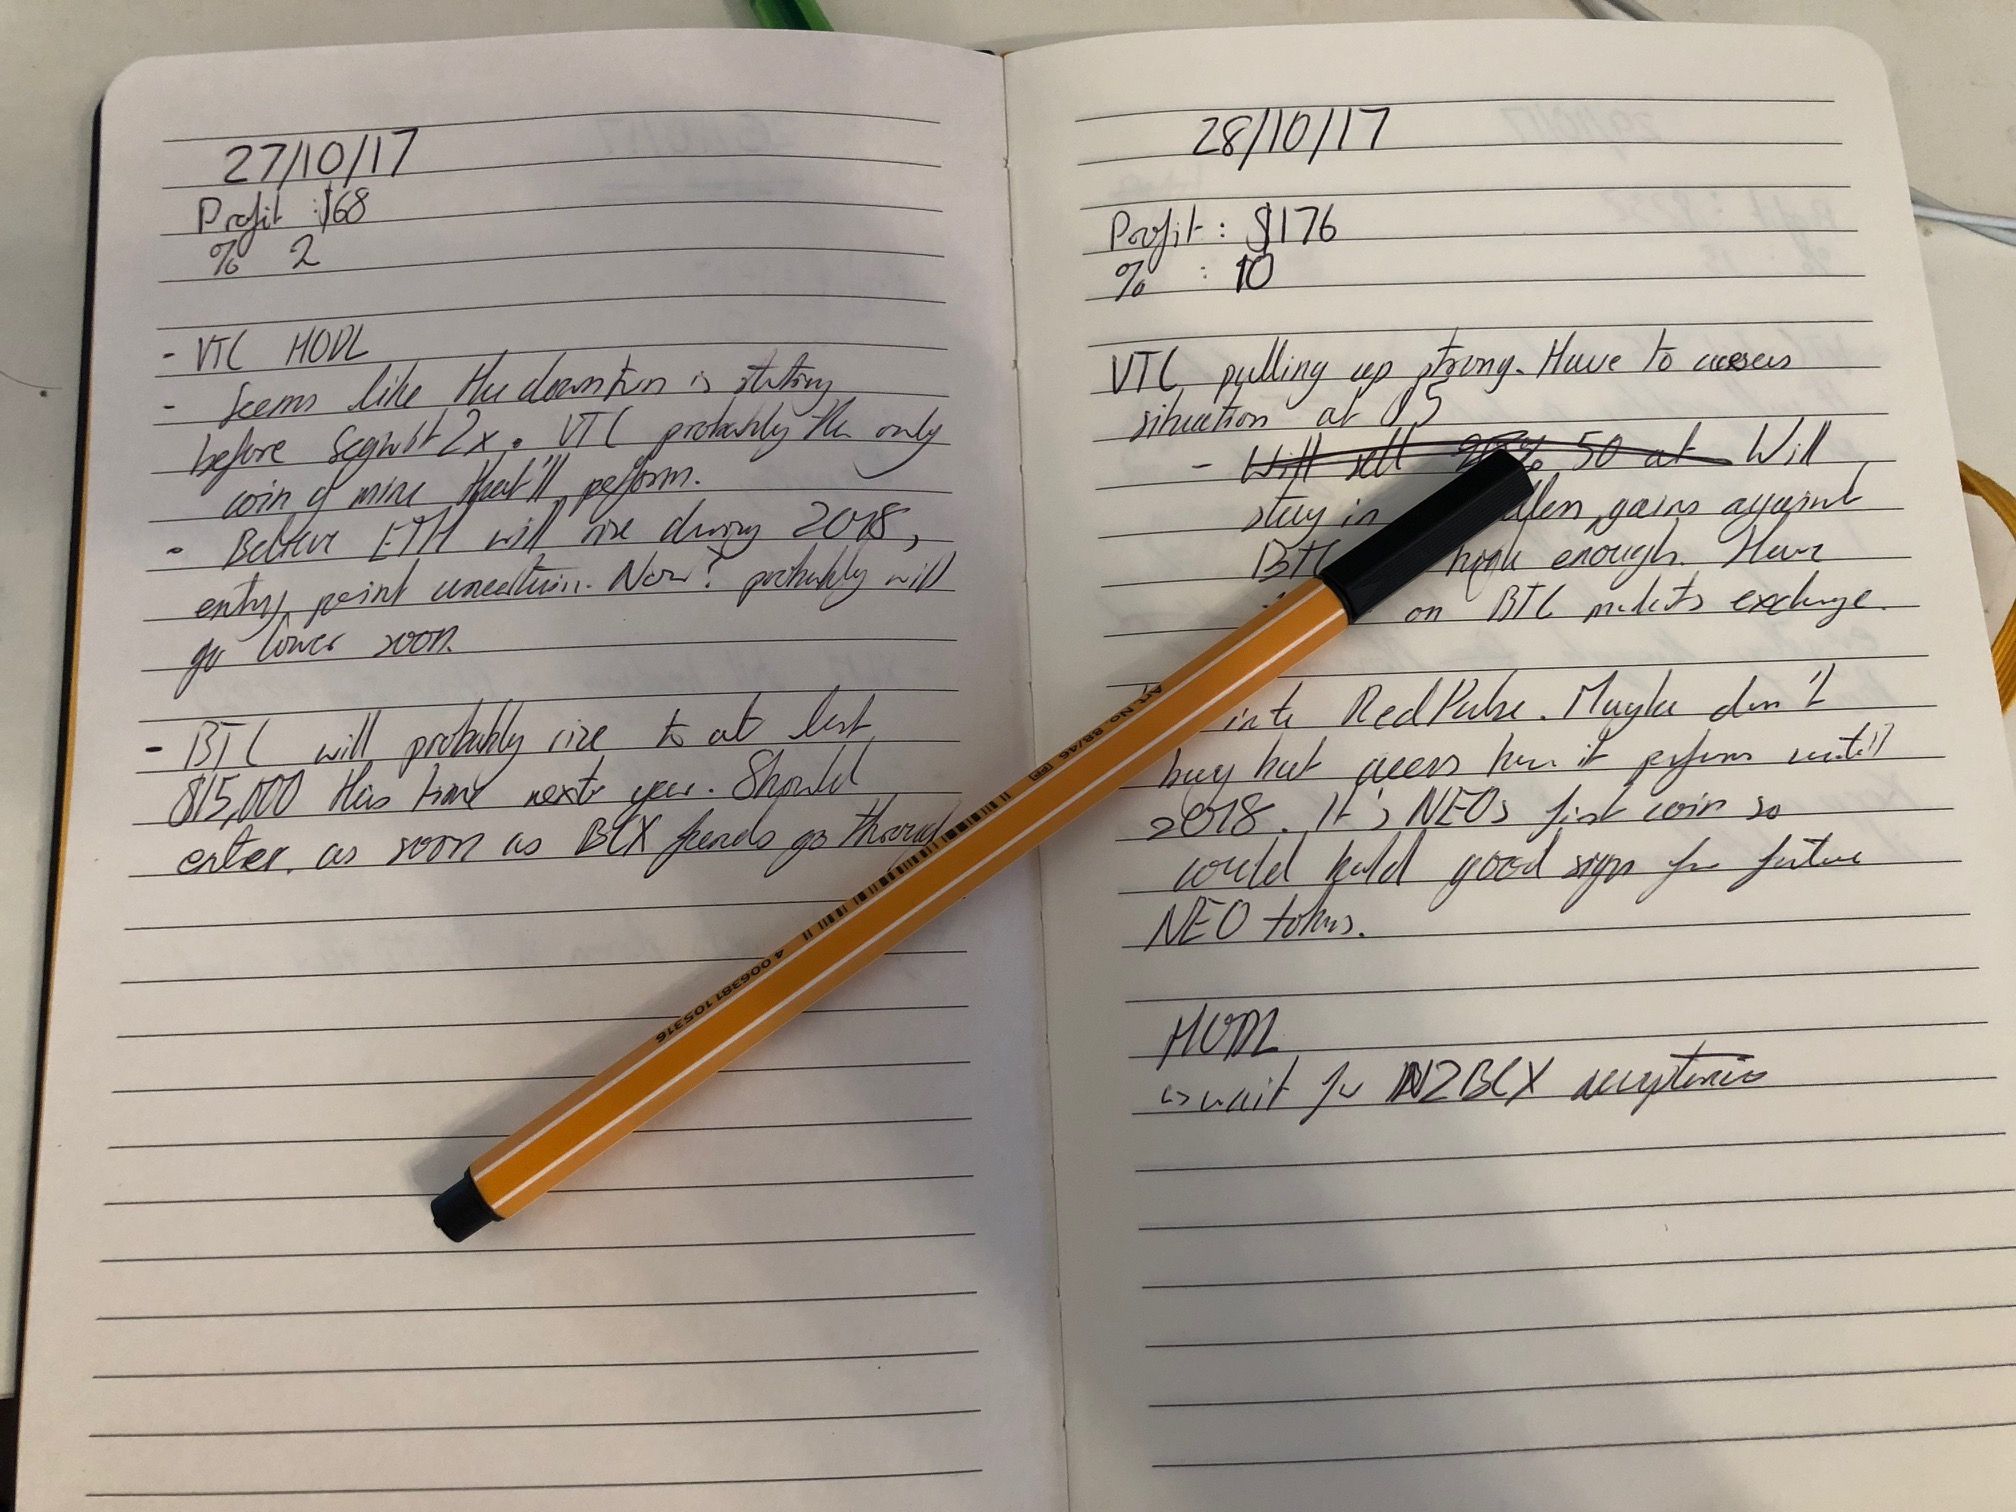 27/10/17
Profit : $68
% 2
- VTC HODL
- Seems like the downturn is
before Segwit 2x. VTC probably the only
coin of mine that'll peform.
- Believe ETH will rise during 2018,
entry point Now? probably will
go lower soon.
- BTC will probably rise to at
$15,000 this time next year. Should
enter as soon as BCX go
28/10/17
Profit : $176
% : 10
VTC pulling up strong. Have to
situation at $5
- Will sell 50 at Will
stay in gains against
BTC enough. Have
on BTC markets exchange.
into RedPulse. Maybe don't
buy but how it
2018. It's NEOs first coin so
could good sign for future
NEO tokens.
HODL
↳ wait for NZBCX
Art. No. 88/46
4 006381 105316